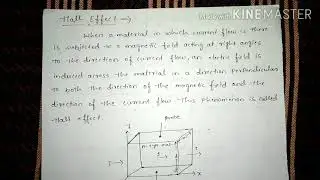 Made with
KINEMASTER
Hall Effect →
When a material in which current flow is there
is subjected to a magnetic field acting at right angles
to the direction of current flow, an electric field is
induced across the material in a direction perpendicular
to both the direction of the magnetic field and the
direction of the current flow. This phenomenon is called
Hall Effect.
probe
Y
I→
x